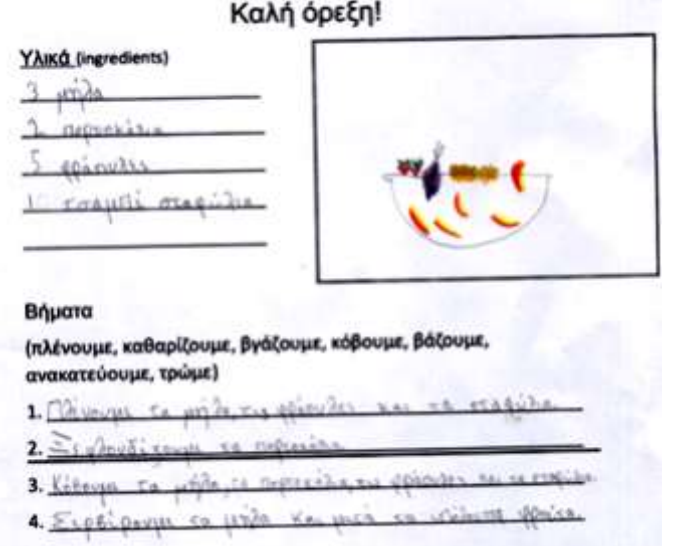 Καλή όρεξη!
Υλικά (ingredients)
3 μήλα
2 πορτοκάλια
5 φράουλες
1 τσαμπί σταφύλια
Βήματα
(πλένουμε, καθαρίζουμε, βγάζουμε, κόβουμε, βάζουμε,
ανακατεύουμε, τρώμε)
1. Πλένουμε τα μήλα, τις φράουλες και τα σταφύλια
2. Ξεφλουδίζουμε τα πορτοκάλια
3. Κόβουμε τα μήλα, τα πορτοκάλια, τις φράουλες και τα σταφύλια
4. Σερβίρουμε τα μήλα και μετά τα υπόλοιπα φρούτα.